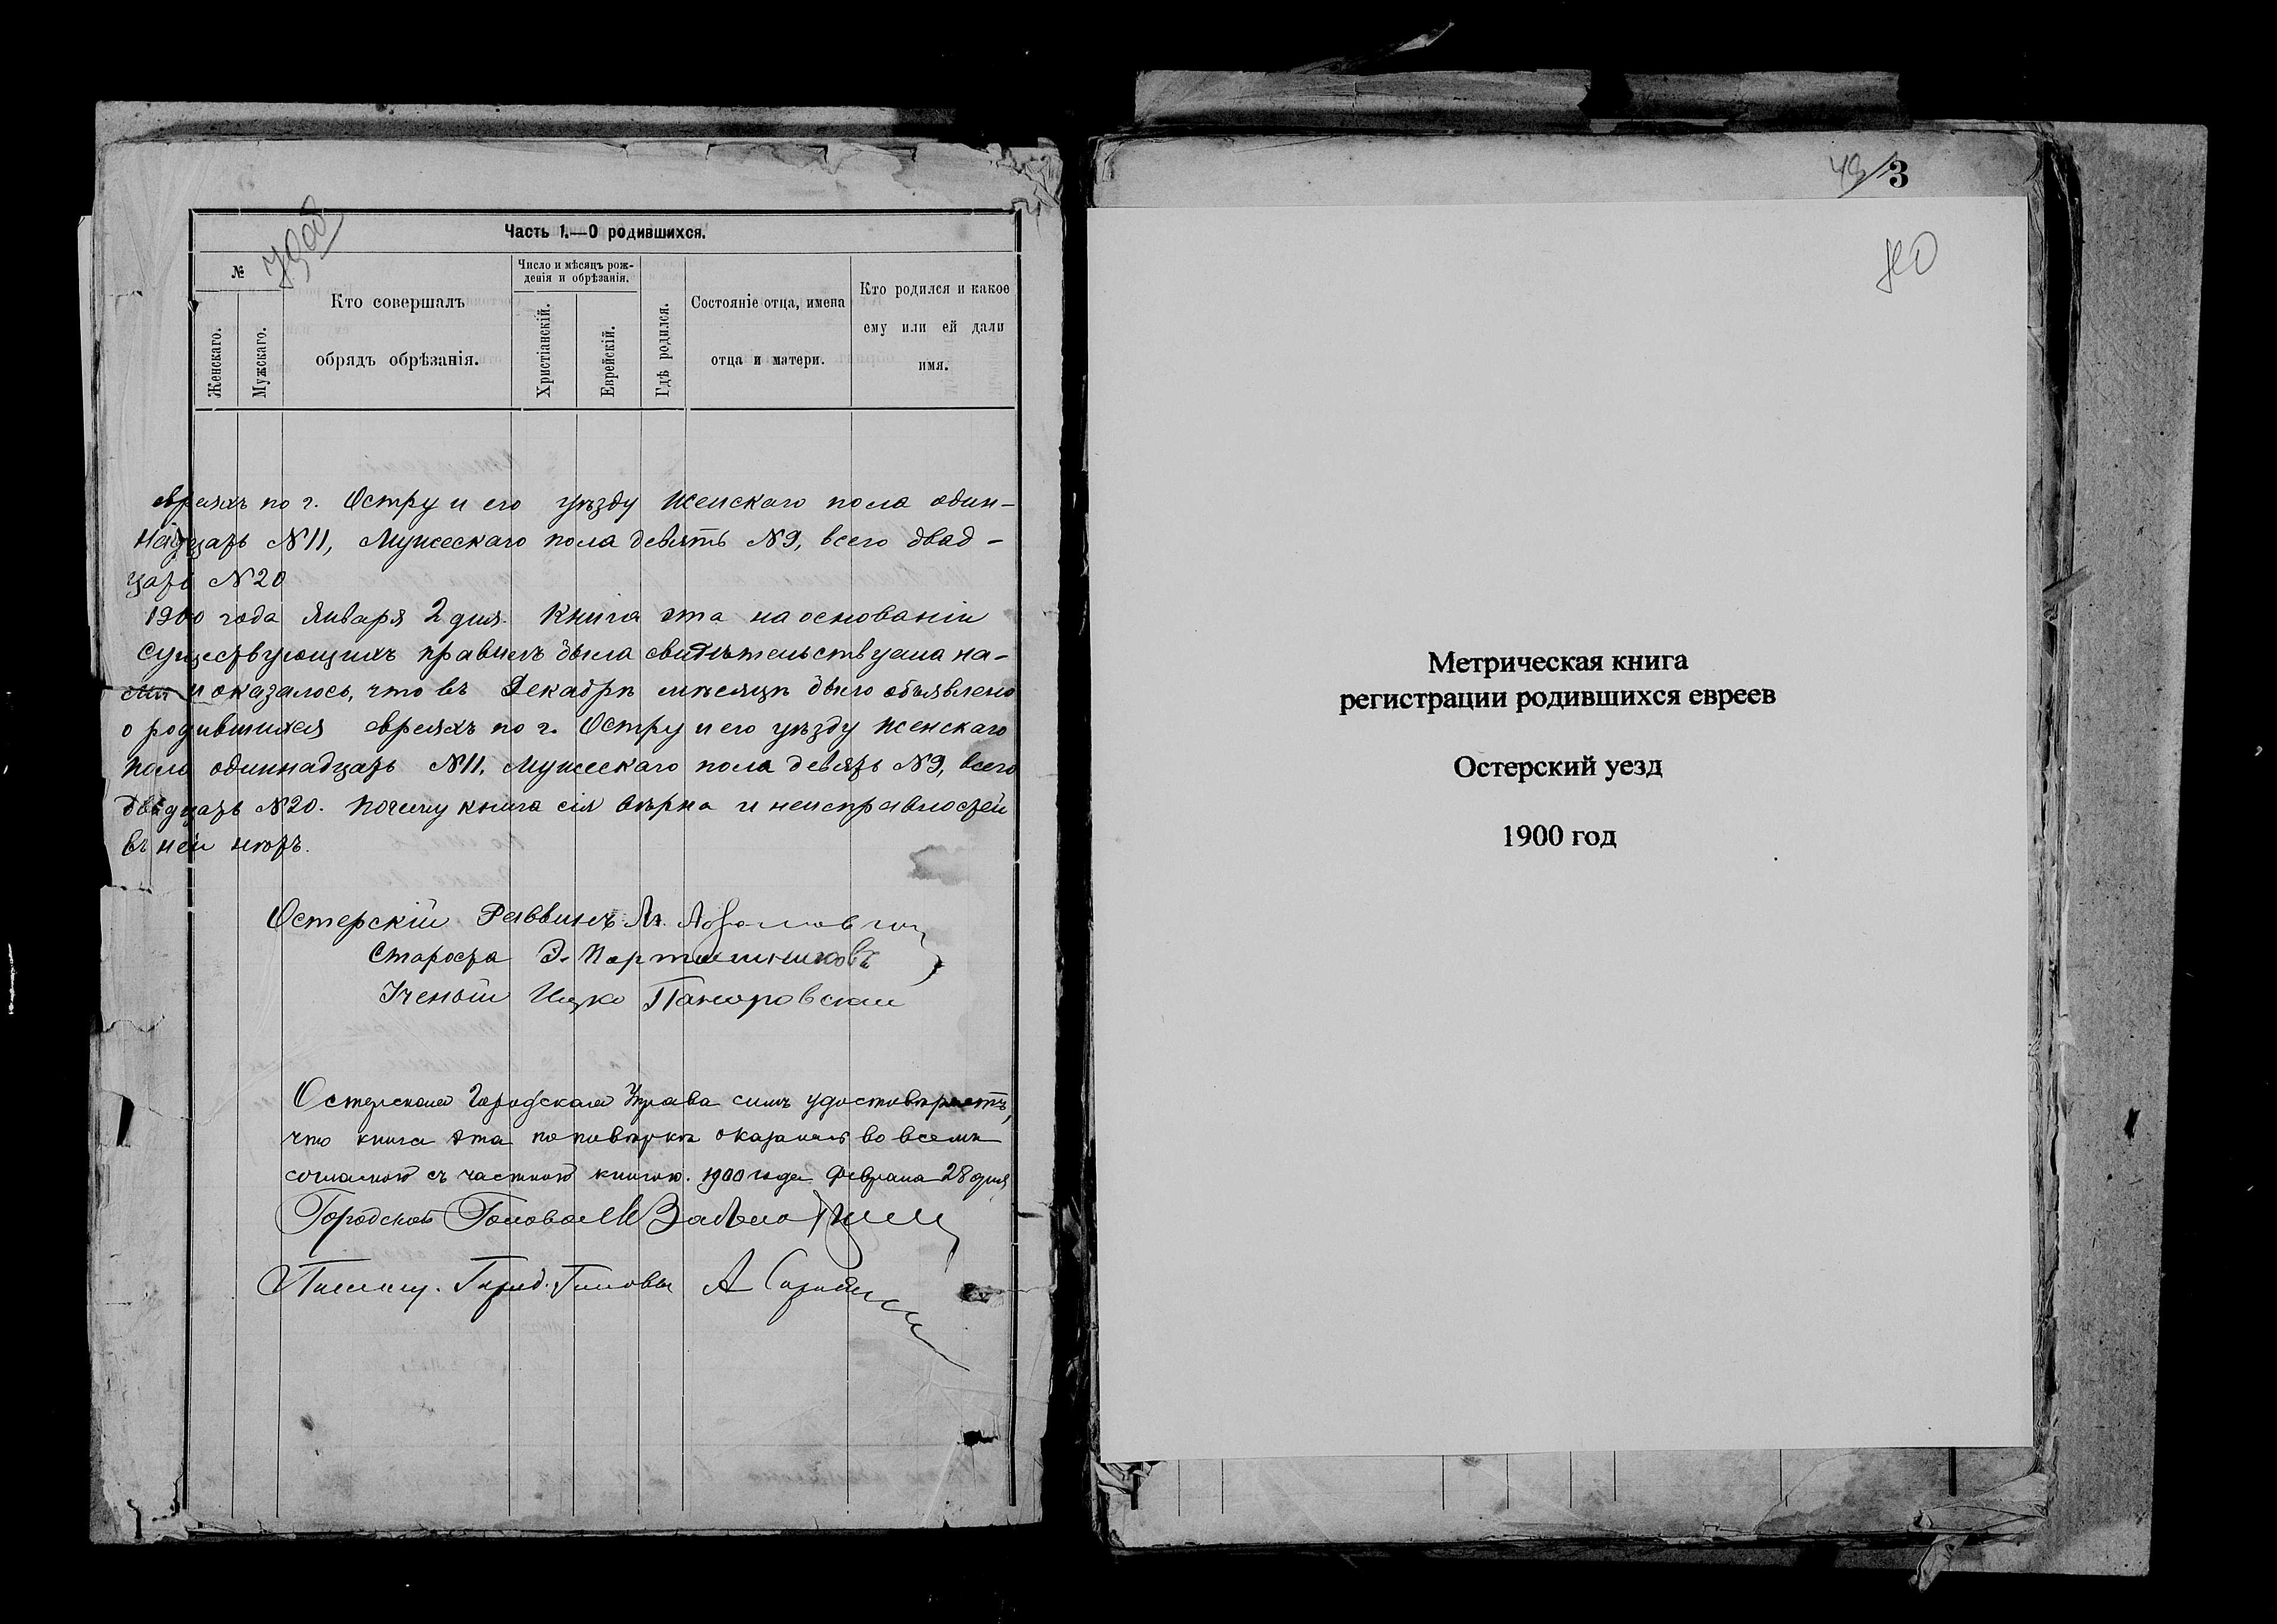 Часть 1.—О родившихся.
№
Женскаго.
Мужскаго.
Кто совершалъ
обрядъ обрѣзанія.
Число и мѣсяцъ рож-
денія и обрѣзанія.
Христіанскій.
Еврейскій.
Гдѣ родился.
Состояніе отца, имена
отца и матери.
Кто родился и какое
ему или ей дали
имя.
евреяхъ по г. Остру и его уѣзду Женскаго пола один-
надцать №11, Мужескаго пола девять №9, всего двад-
цать №20
1900 года Января 2 дня. Книга эта на основаніи
существующихъ правилъ была свидѣтельствуема на-
ми и оказалось, что въ Декабрѣ мѣсяцѣ было объявлено
о родившихся евреяхъ по г. Остру и его уѣзду Женскаго
пола одиннадцать №11, Мужескаго пола девять №9, всего
двадцать №20. Почему книга сія вѣрна и неисправностей
въ ней нѣтъ.
Остерскій Раввинъ
Староста Э.
Ученый Ицко
Остерская Городская Управа симъ удостовѣряетъ,
что книга эта по повѣркѣ оказалась во всемъ
согласною съ частною книгою. 1900 года Февраля 28 дня
Городской Голова
Город. Головы А
43
3
Метрическая книга
регистрации родившихся евреев
Остерский уезд
1900 год